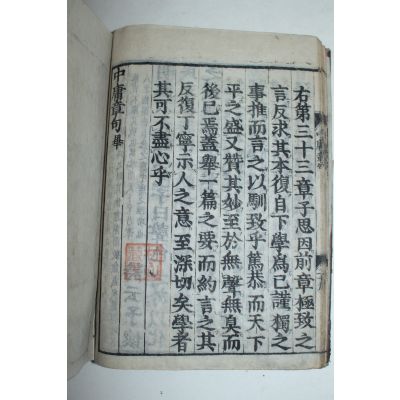 右第三十三章子思因前章極致之
言反求其本復自下學為己謹獨之
事推而言之以馴致乎篤恭而天下
平之盛又贊其妙至於無聲無臭而
後已焉蓋舉一篇之要而約言之其
反復丁寧示人之意至深切矣學者
其可不盡心乎
中庸章句畢